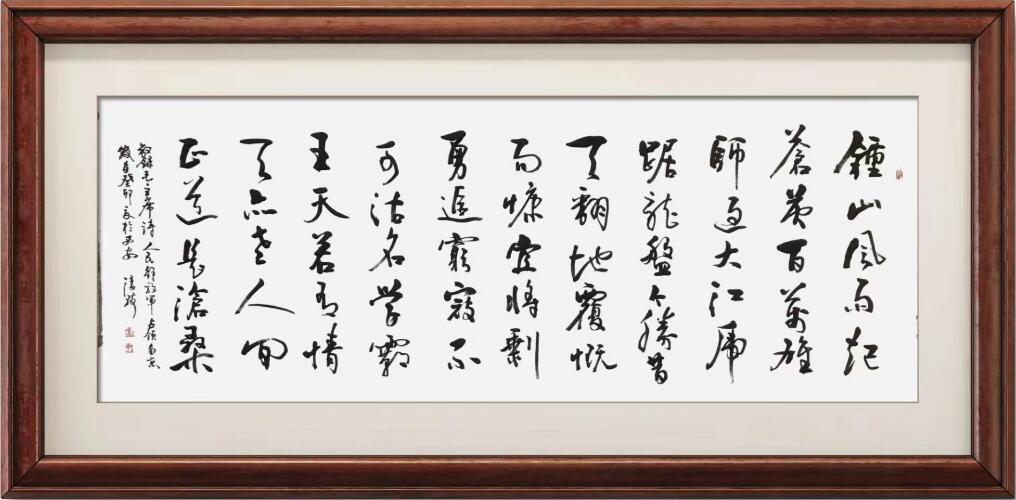 鍾山風雨起
蒼黄百萬雄
師過大江虎
踞龍盤今勝昔
天翻地覆慨
而慷宜將剩
勇追窮寇不
可沽名學霸
王天若有情
天亦老人間
正道是滄桑
敬錄毛主席詩人民解放軍占領南京
歲在癸卯於西安